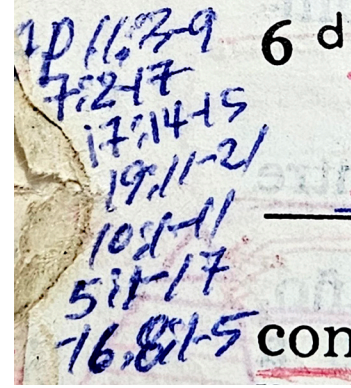 11:3-9
6 d
7:2-17
17:14-15
19:11-21
10:1-11
5:1-17
16,8:1-5
con